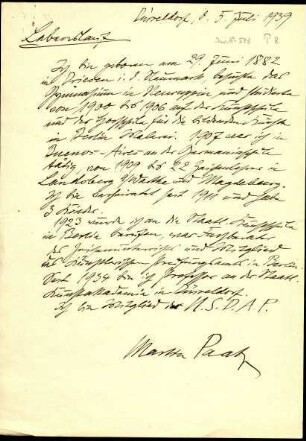 Düsseldorf, d. 5. Juli 1939
Lebenslauf
Ich bin geboren am 29. Juni 1882
in Driesen i. d. Neumark, besuchte das
Gymnasium in Neuruppin und studierte
von 1900 bis 1906 auf der Kunstschule
und der Hochschule für die bildenden Künste
in Berlin Malerei. 1907 war ich in
Buenos-Aires an der Germaniaschule
tätig, von 1909 bis 22 Zeichenlehrer in
Landsberg Warthe und Magdeburg.
Ich bin verheiratet seit 1911 und habe
3 Kinder.
1923 wurde ich an die Staatl. Kunstschule
in Berlin berufen, war
und Mitglied
des künstlerischen Prüfungsamts in Berlin.
Seit 1934 bin ich Professor an der Staatl.
Kunstakademie in Düsseldorf.
Ich bin Mitglied der N.S.D.A.P.
Martin Paatz